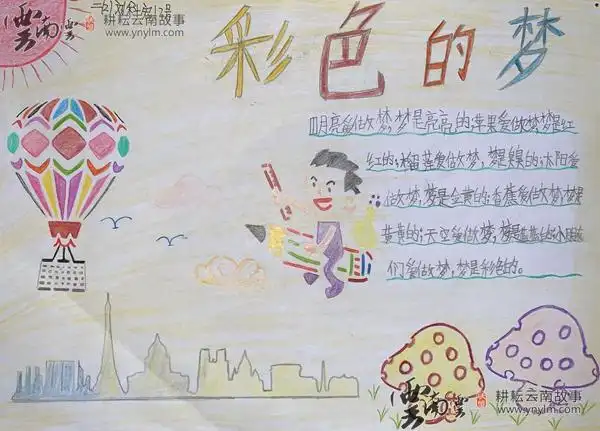 耕耘云南故事
www.ynylm.com
彩色的梦
月亮爱做梦,梦是亮亮的;苹果爱做梦,梦是红
红的;榴莲爱做梦,梦是臭的;太阳爱
做梦,梦是金黄的;香蕉爱做梦,梦是
黄黄的;天空爱做梦,梦是蓝蓝的;小朋友
们爱做梦,梦是彩色的。
耕耘云南故事
www.ynylm.com